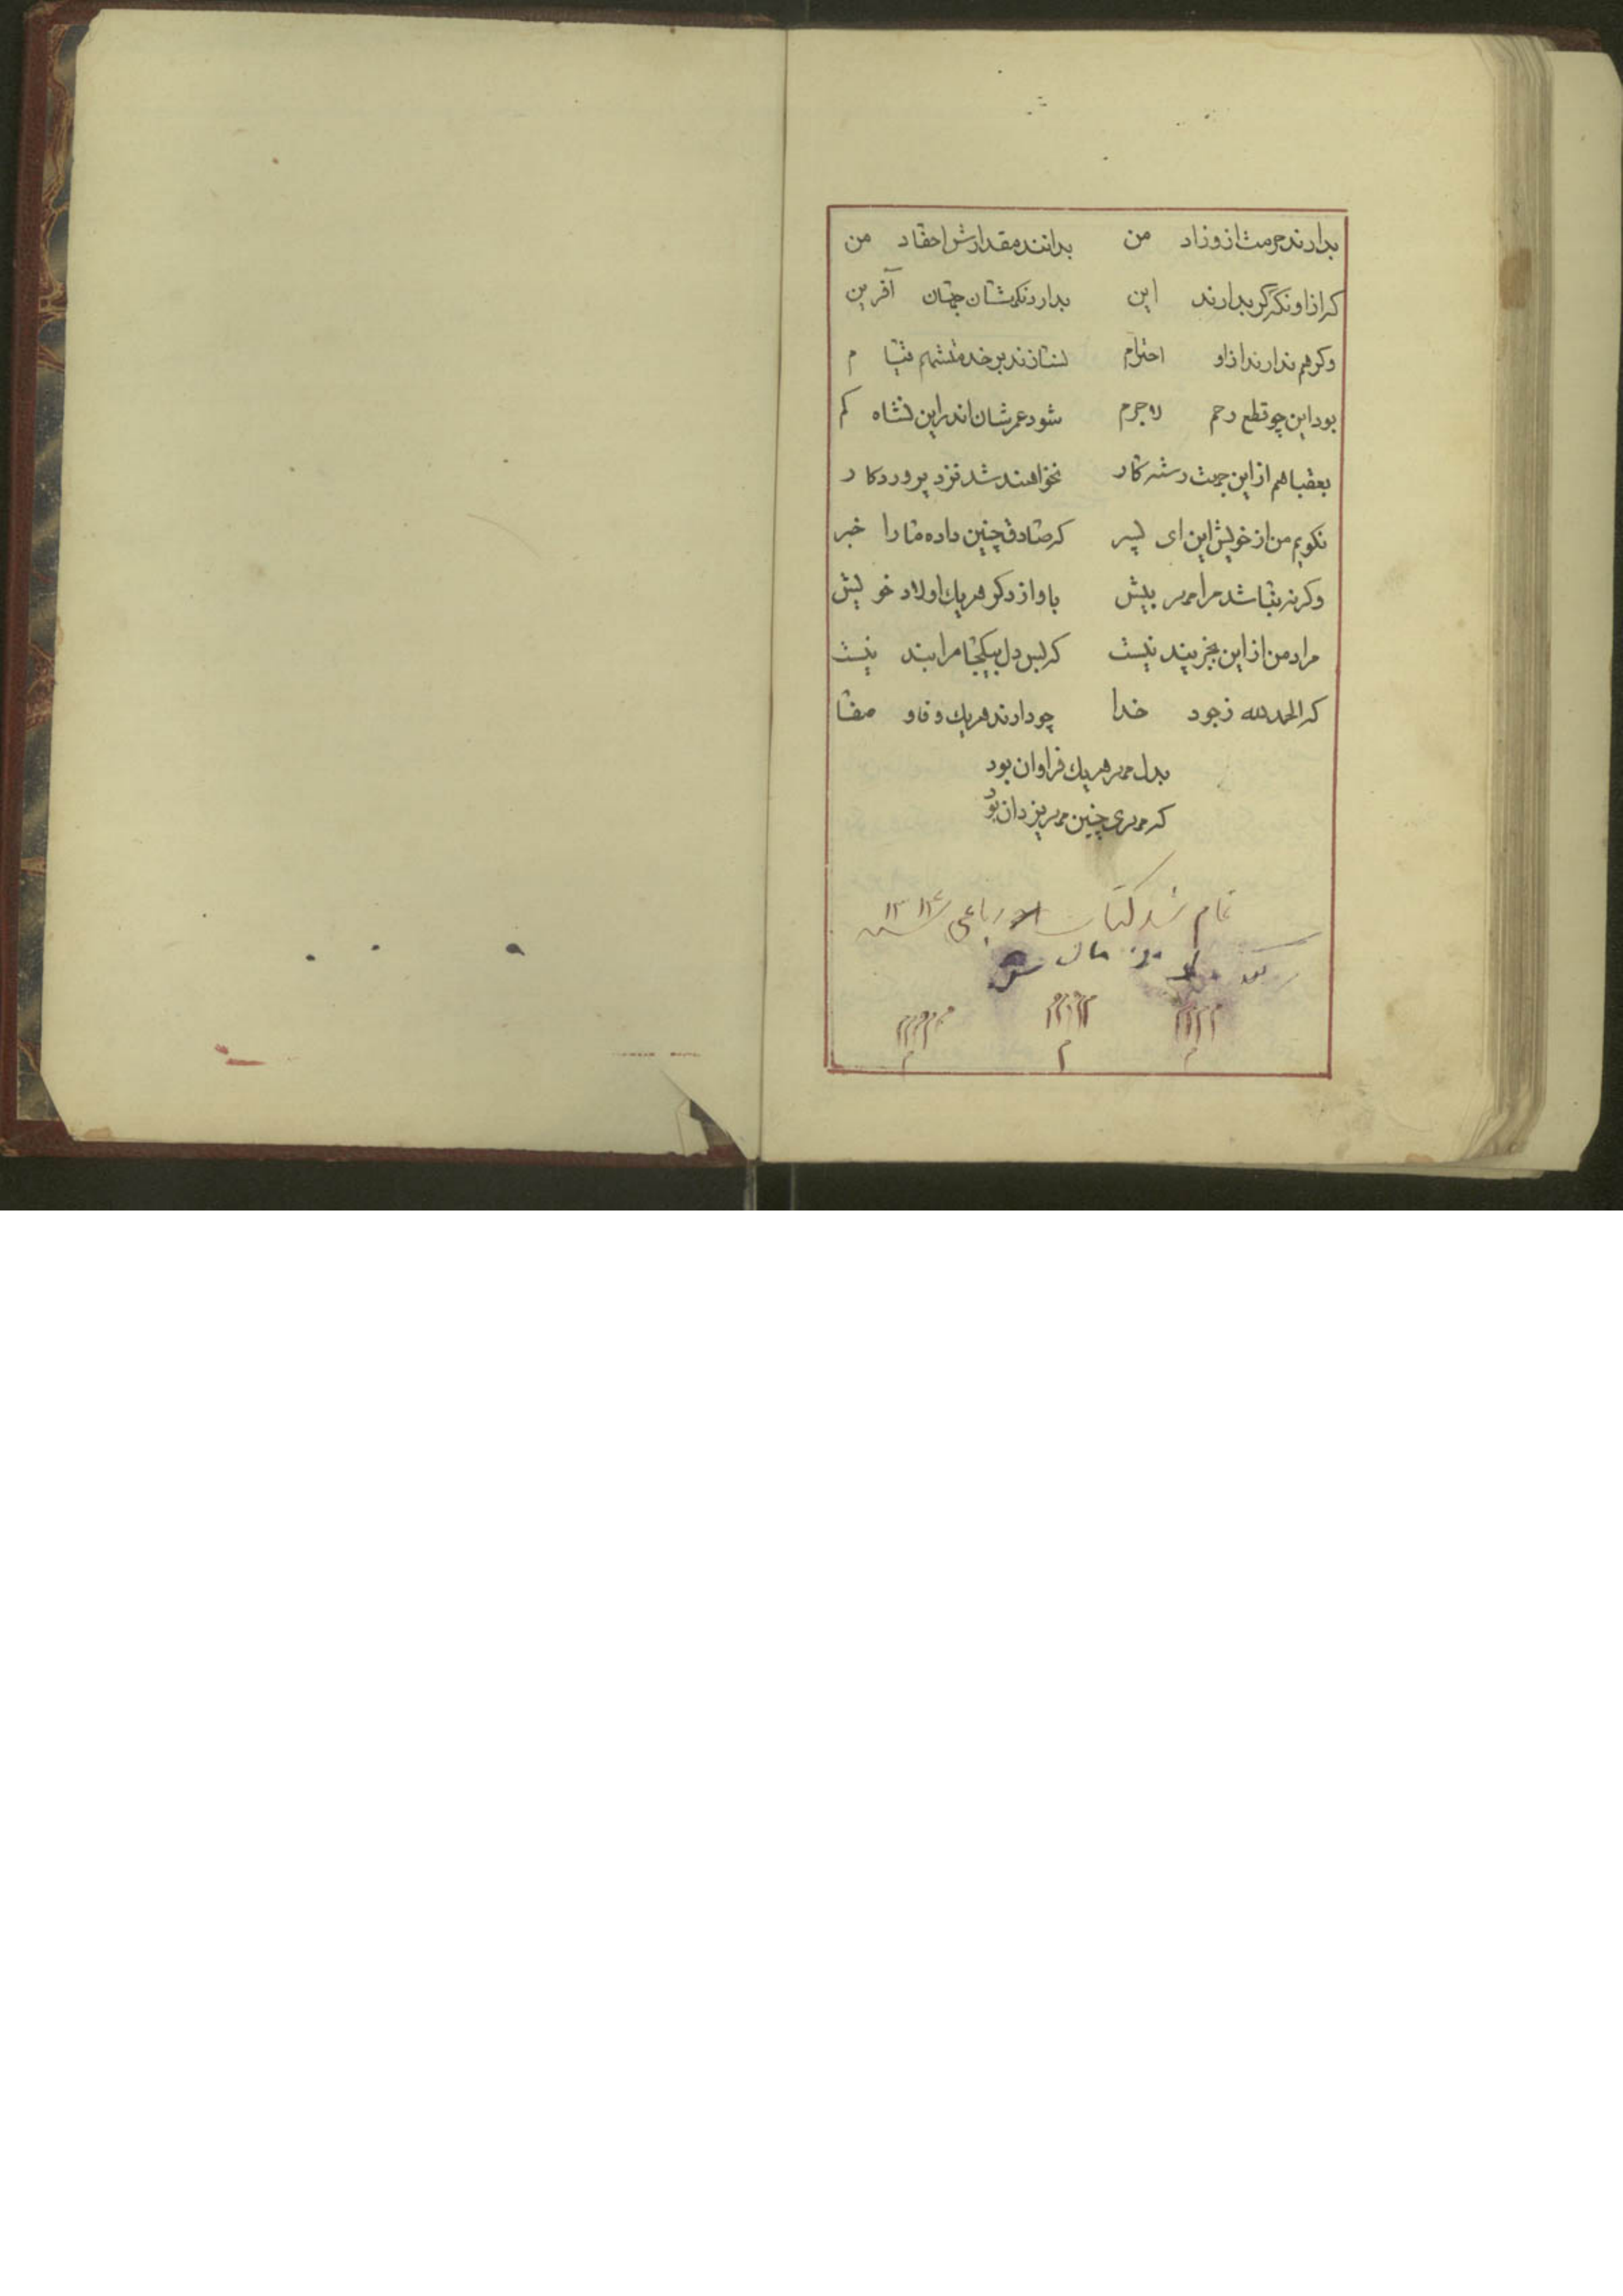 بدارند حرمت از و زاد من بدانند مقدارش احفاد من
که از او نگه گر بدارند این بدارد نگهشان جهان آفرین
وکر هم ندارند از او احترام نسازند بر خدمتش هم قیام
بود این چو قطع رحم لاجرم شود عمرشان اندر این نشاه کم
بعقبا هم از این جهت رستکار نخواهند شد نزد پروردکار
نکویم من از خویش این ای پسر که صادق چنین داده ما را خبر
وکرنه بباشد مرا مهر بیش باو از دکر هر یك اولاد خویش
مراد من از این بجز پند نیست که بس دل بیکجا مرا بند نیست
که الحمدلله ز جود خدا چو دارند هر یك وفا و صفا
بدل مهر هر یك فراوان بود
که مهری چنین مهر یزدان بود
تمام شد کتاب رباعی سنه